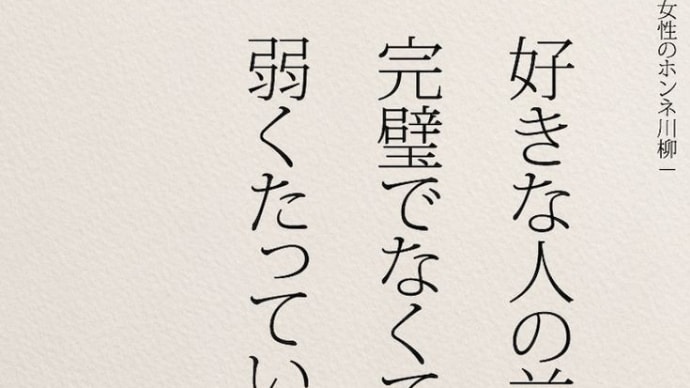 女性のホンネ川柳―
好きな人の
完璧でなくて
弱くたってい